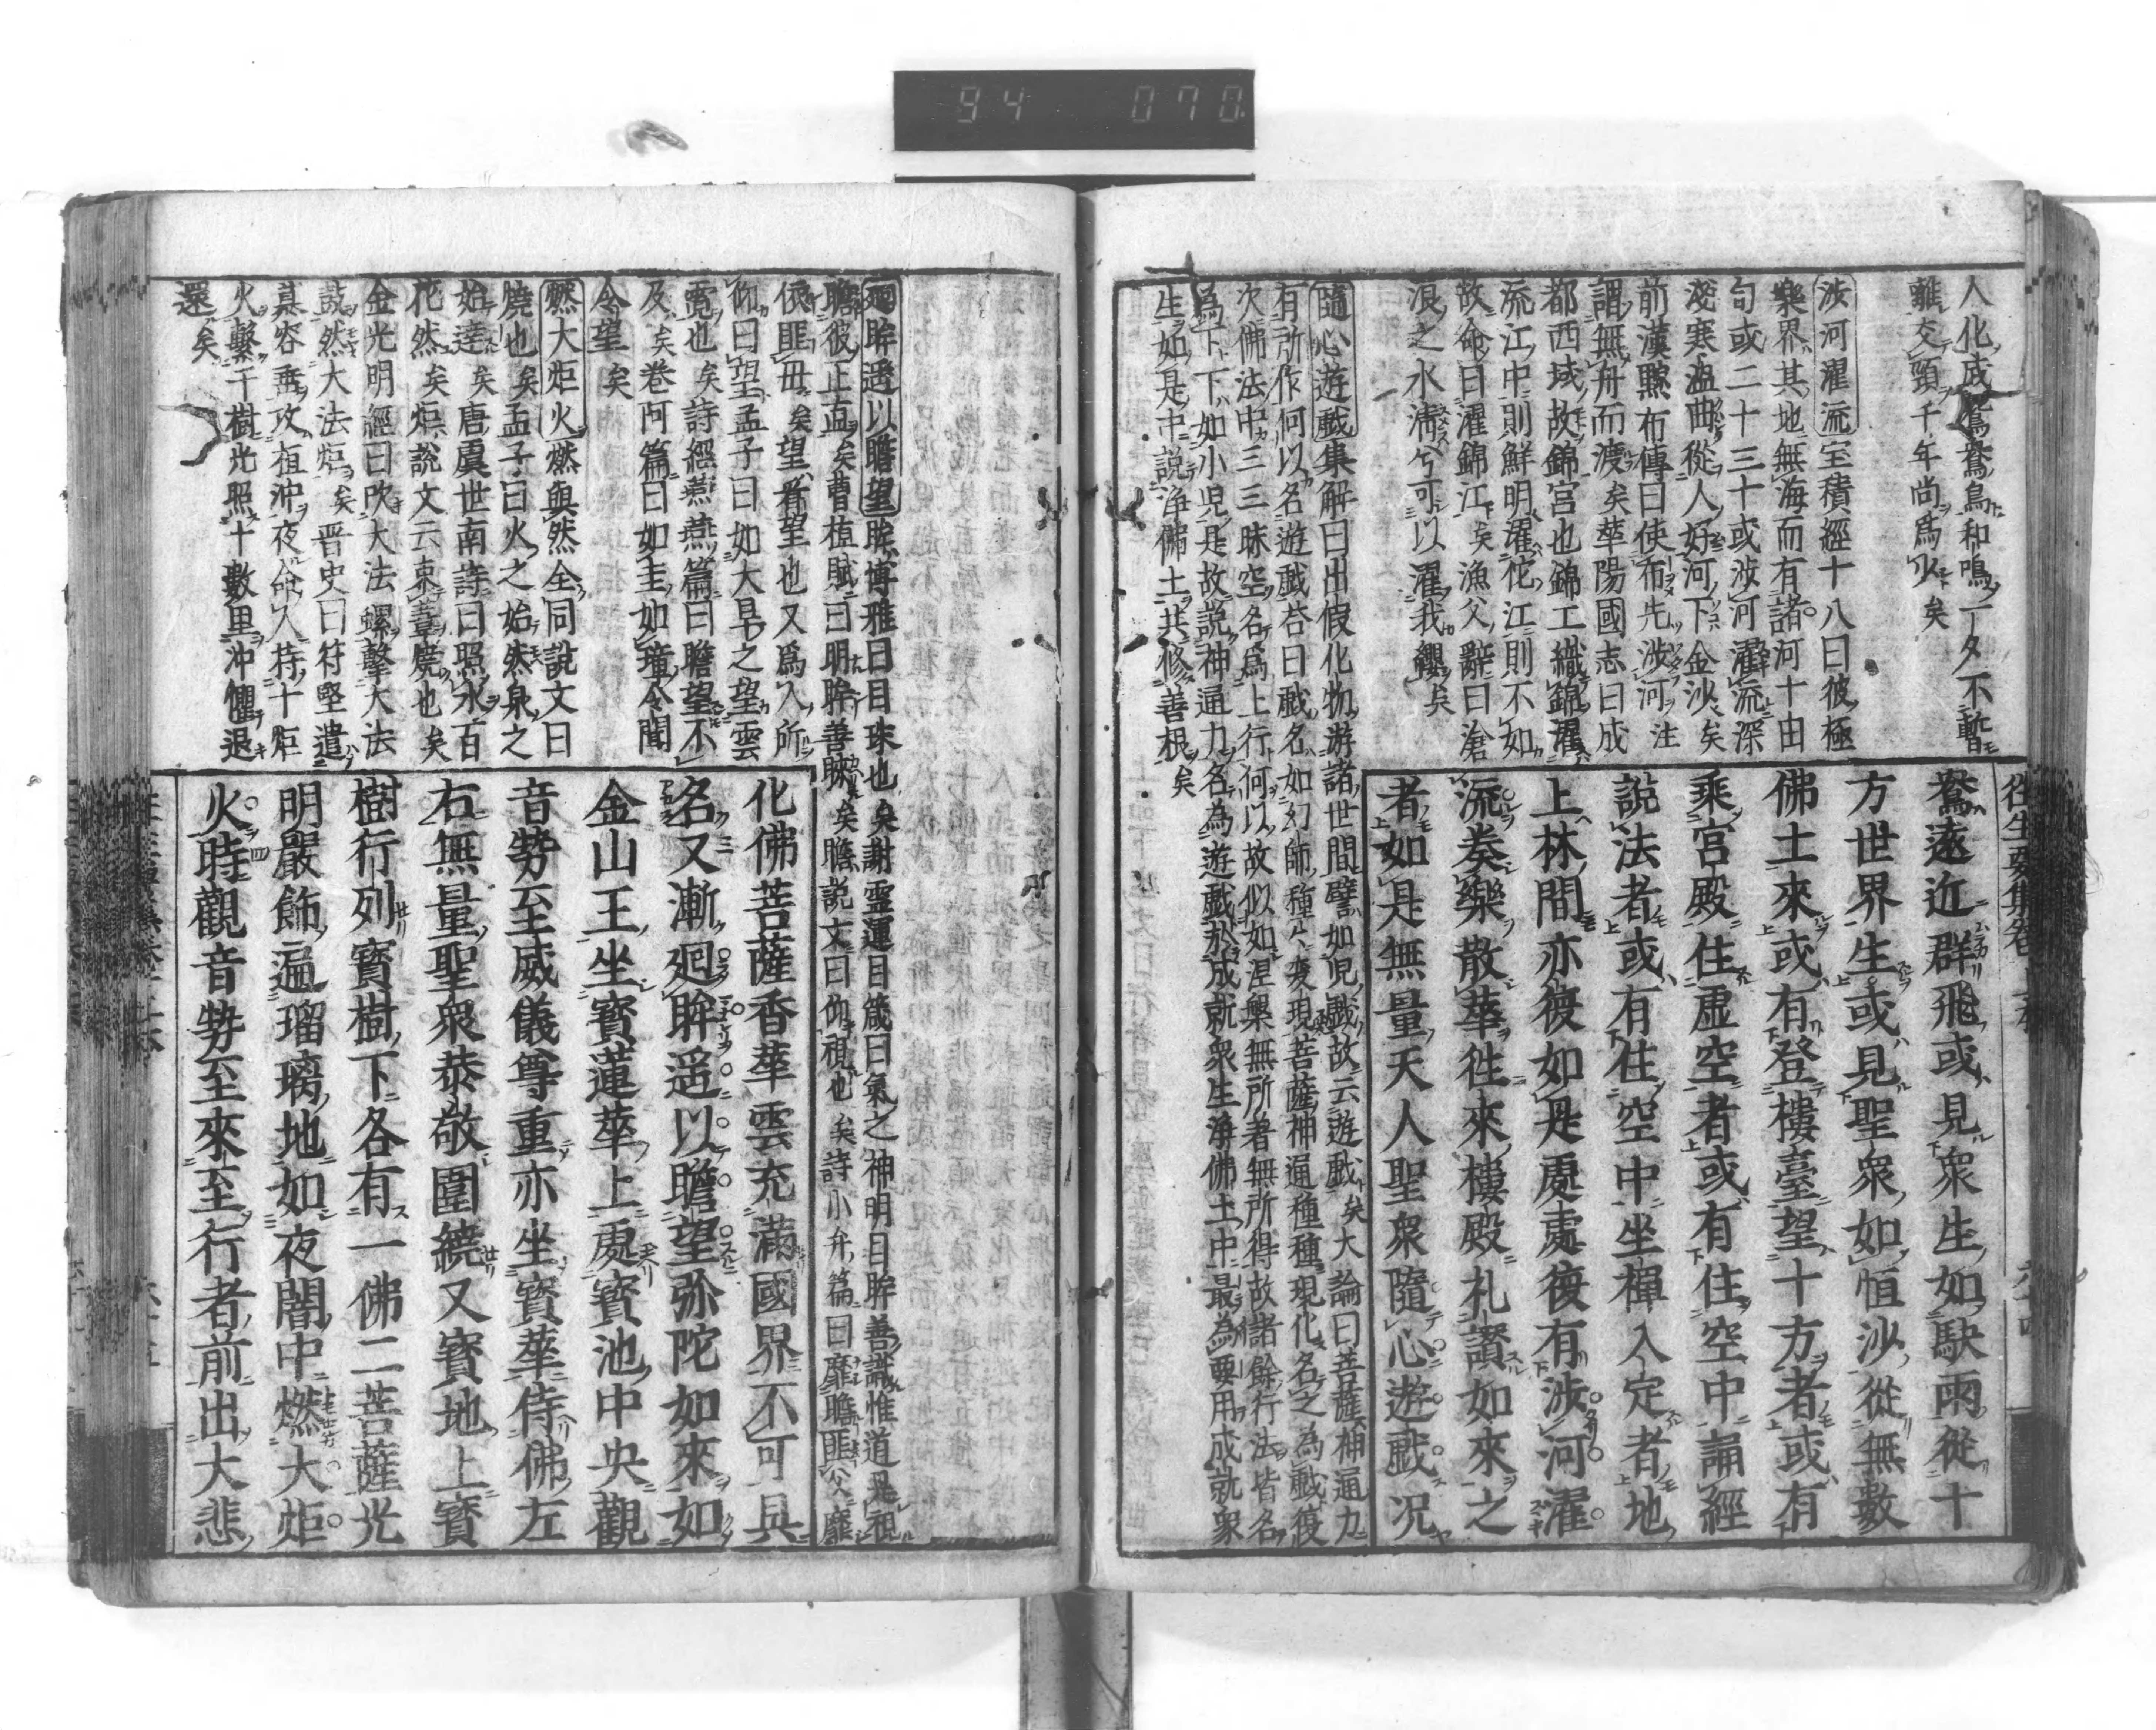 94 070
人化成鴛鴦鳥和鳴一夕不暫
離交頸千年尚爲少矣
涉河濯流宝積經十八曰彼極
樂界其地無海而有諸河十由
旬或二十三十或涉河濯流深
淺寒溫曲從人好河下金沙矣
前漢黥布傳曰使布先涉河注
謂無舟而渡矣華陽國志曰成
都西域故錦宮也錦工織錦濯
流江中則鮮明濯佗江則不如
故命曰濯錦江矣漁父辭曰滄
浪之水淸兮可以濯我纓矣
隨心遊戲集解曰出假化物游諸世間譬如兒戲故云遊戲矣大論曰菩薩神通力
有所作何以名遊戲荅曰戲名如幻師種種変現菩薩神通種種現化名之為戲復
次佛法中三三昧空名為上行何以故似如涅槃無所著無所得故諸餘行法皆名
為下下如小兒是故説神通力名為遊戲於成就衆生淨佛土中最為要用成就衆
生如是中説淨佛土共修善根矣
鴦遠近群飛或見衆生如駃雨從十
方世界生或見聖衆如恒沙從無數
佛土來或有登樓臺望十方者或有
乘宮殿住虛空者或有住空中誦經
說法者或有住空中坐禪入定者地
上林間亦復如是處處復有涉河濯
流奏樂散華往來樓殿礼讚如來之
者如是無量天人聖衆隨心遊戲况
廻眸遙以瞻望眸博雅曰目珠也矣謝靈運目箴曰氣之神明目眸善識惟道是視
瞻彼止直矣曹植賦曰明眸善睞矣瞻説文曰仰視也矣詩小弁篇曰靡瞻匪父靡
依匪毋矣望看望也又爲入所
仰曰望孟子曰如大旱之望雲
霓也矣詩經燕燕篇曰瞻望不
及矣卷阿篇曰如圭如璋令聞
令望矣
燃大炬火燃與然全同說文曰
燒也矣孟子曰火之始然泉之
始達矣唐虞世南詩曰照水百
花然矣炬說文云束葦燒也矣
金光明經曰吹大法螺擊大法
鼓然大法炬矣晋史曰符堅遣
其容垂攻桓沖夜命入持十炬
火繫于樹光照十數里沖懼退
還矣
化佛菩薩香華雲充滿國界不可具
名又漸廻眸遙以瞻望弥陀如來如
金山王坐寶蓮華上處寶池中央觀
音勢至威儀尊重亦坐寶華侍佛左
右無量聖衆恭敬圍繞又寶地上寶
樹行列寶樹下各有一佛二菩薩光
明嚴飾遍瑠璃地如夜闇中燃大炬
火時觀音勢至來至行者前出大悲